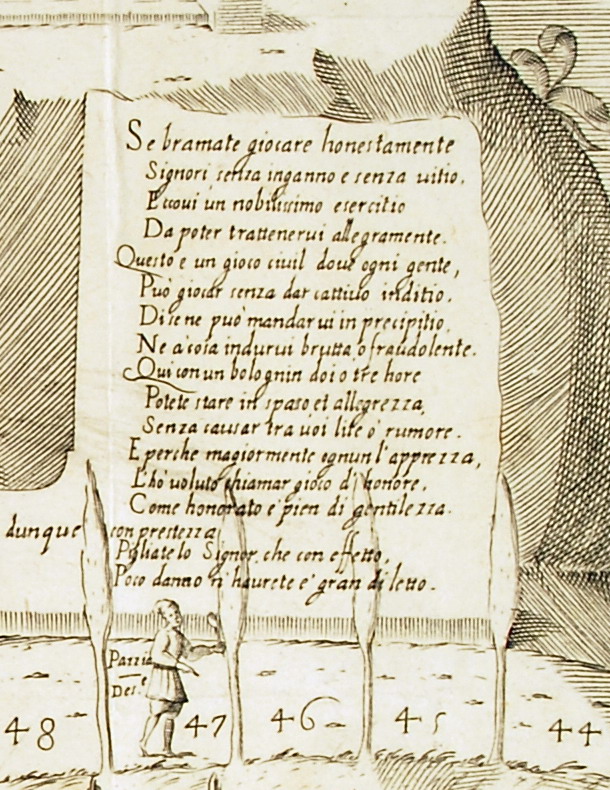 Se bramate giocare honestamente
Signori senza inganno e senza uitio,
Eccoui un nobilissimo esercitio
Da poter trattenerui allegramente.
Questo e un gioco ciuil doue ogni gente,
Può giocar senza dar cattiuo inditio.
Di se ne può mandarui in precipitio,
Ne a cosa indurui brutta, o fraudolente.
Qui con un bolognin doi o tre hore
Potete stare in spaso, et allegrezza,
Senza causar tra uoi lite o rumore.
E perche magiormente ognun l'apprezza,
L'hò uoluto chiamar gioco di honore,
Come honorato e pien di gentilezza.
dunque con prestezza
Pigliatelo Signor, che con effetto,
Poco danno n'haurete e gran diletto.
Pazzia
48 47 46 45 44